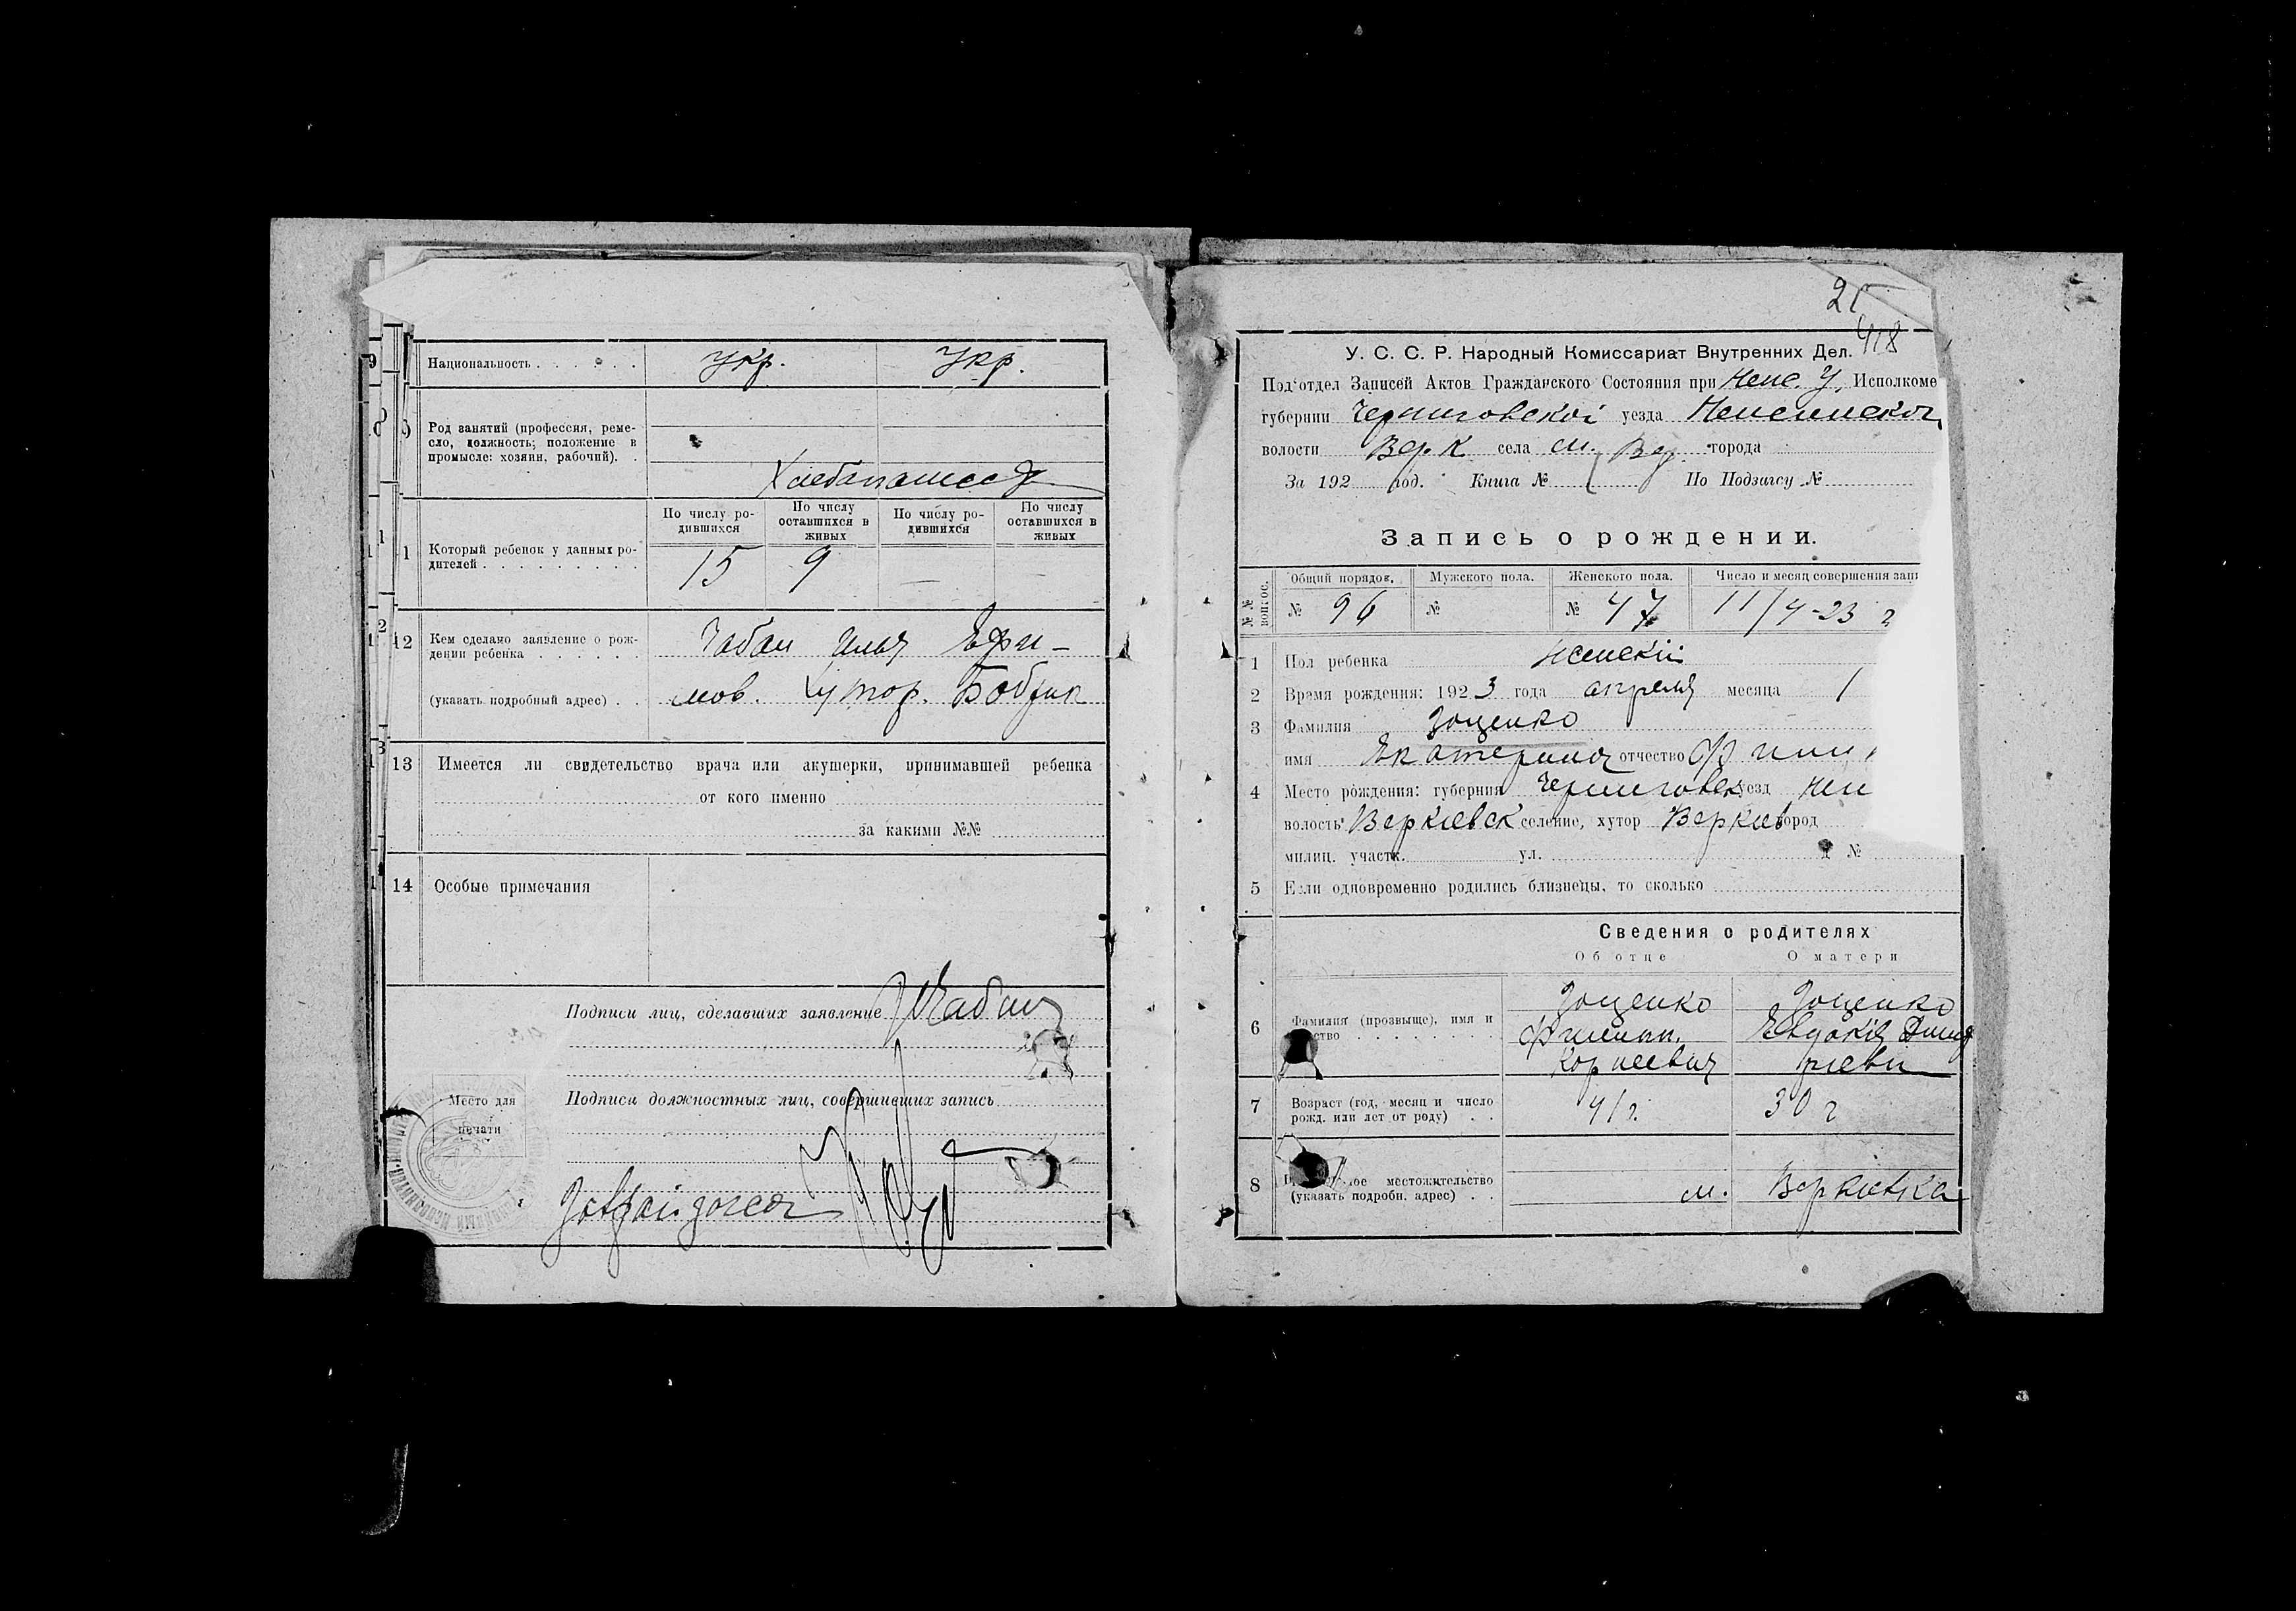 Национальность . . . . . .
укр.
укр.
9
Род занятий (профессия, реме-
сло, должность; положение в
промысле: хозяин, рабочий). .
Хлебопашес
11
Который ребенок у данных ро-
дителей . . . . . . . . .
По числу ро-
дившихся
По числу
оставшихся в
живых
По числу ро-
дившихся
По числу
оставшихся в
живых
15
9
—
—
12
Кем сделано заявление о рож-
дении ребенка . . . . . .
(указать подробный адрес) . .
Чабан Илья Ефи-
мов. Хутор. Бобрик
13
Имеется ли свидетельство врача или акушерки, принимавшей ребенка
от кого именно
за какими №№
14
Особые примечания
Подписи лиц, сделавших заявление
Чабан
Место для
печати
Подписи должностных лиц, совершивших запись
25
418
У. С. С. Р. Народный Комиссариат Внутренних Дел.
Под‘отдел Записей Актов Гражданского Состояния при Неж. У. Исполкоме
губернии Черниговской уезда Неженской
волости Верк села м. Вер. города
За 192 год. Книга № По Подзагсу №
Запись о рождении.
№№
вопрос.
Общий порядов.
Мужского пола.
Женского пола.
Число и месяц совершения запи
№ 96
№
№ 47
11/4-23 г
1 Пол ребенка женский
2 Время рождения: 1923 года апреля месяца 1
3 Фамилия Зощенко
имя Екатерина отчество Фили
4 Место рождения: губерния Черниговск уезд Неж
волость Веркиевск селение, хутор Веркиев город
милиц. участк. ул. №
5 Если одновременно родились близнецы, то сколько
Сведения о родителях
Об отце
О матери
6
Фамилия (прозвыще), имя и
ство . . . . . . . .
Зощенко
Филипп.
Корнеевич
Зощенко
Евдокия Дмит
риевн
7
Возраст (год, месяц и число
рожд. или лет от роду) . .
41 г.
30 г
8
ое местожительство
(указать подробн. адрес) . .
м. Веркиевка